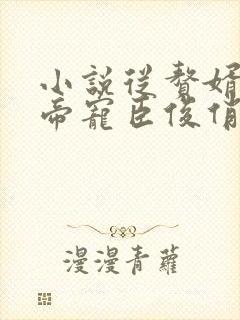 小說從贅婿
帝寵臣俊俏
漫漫青蘿